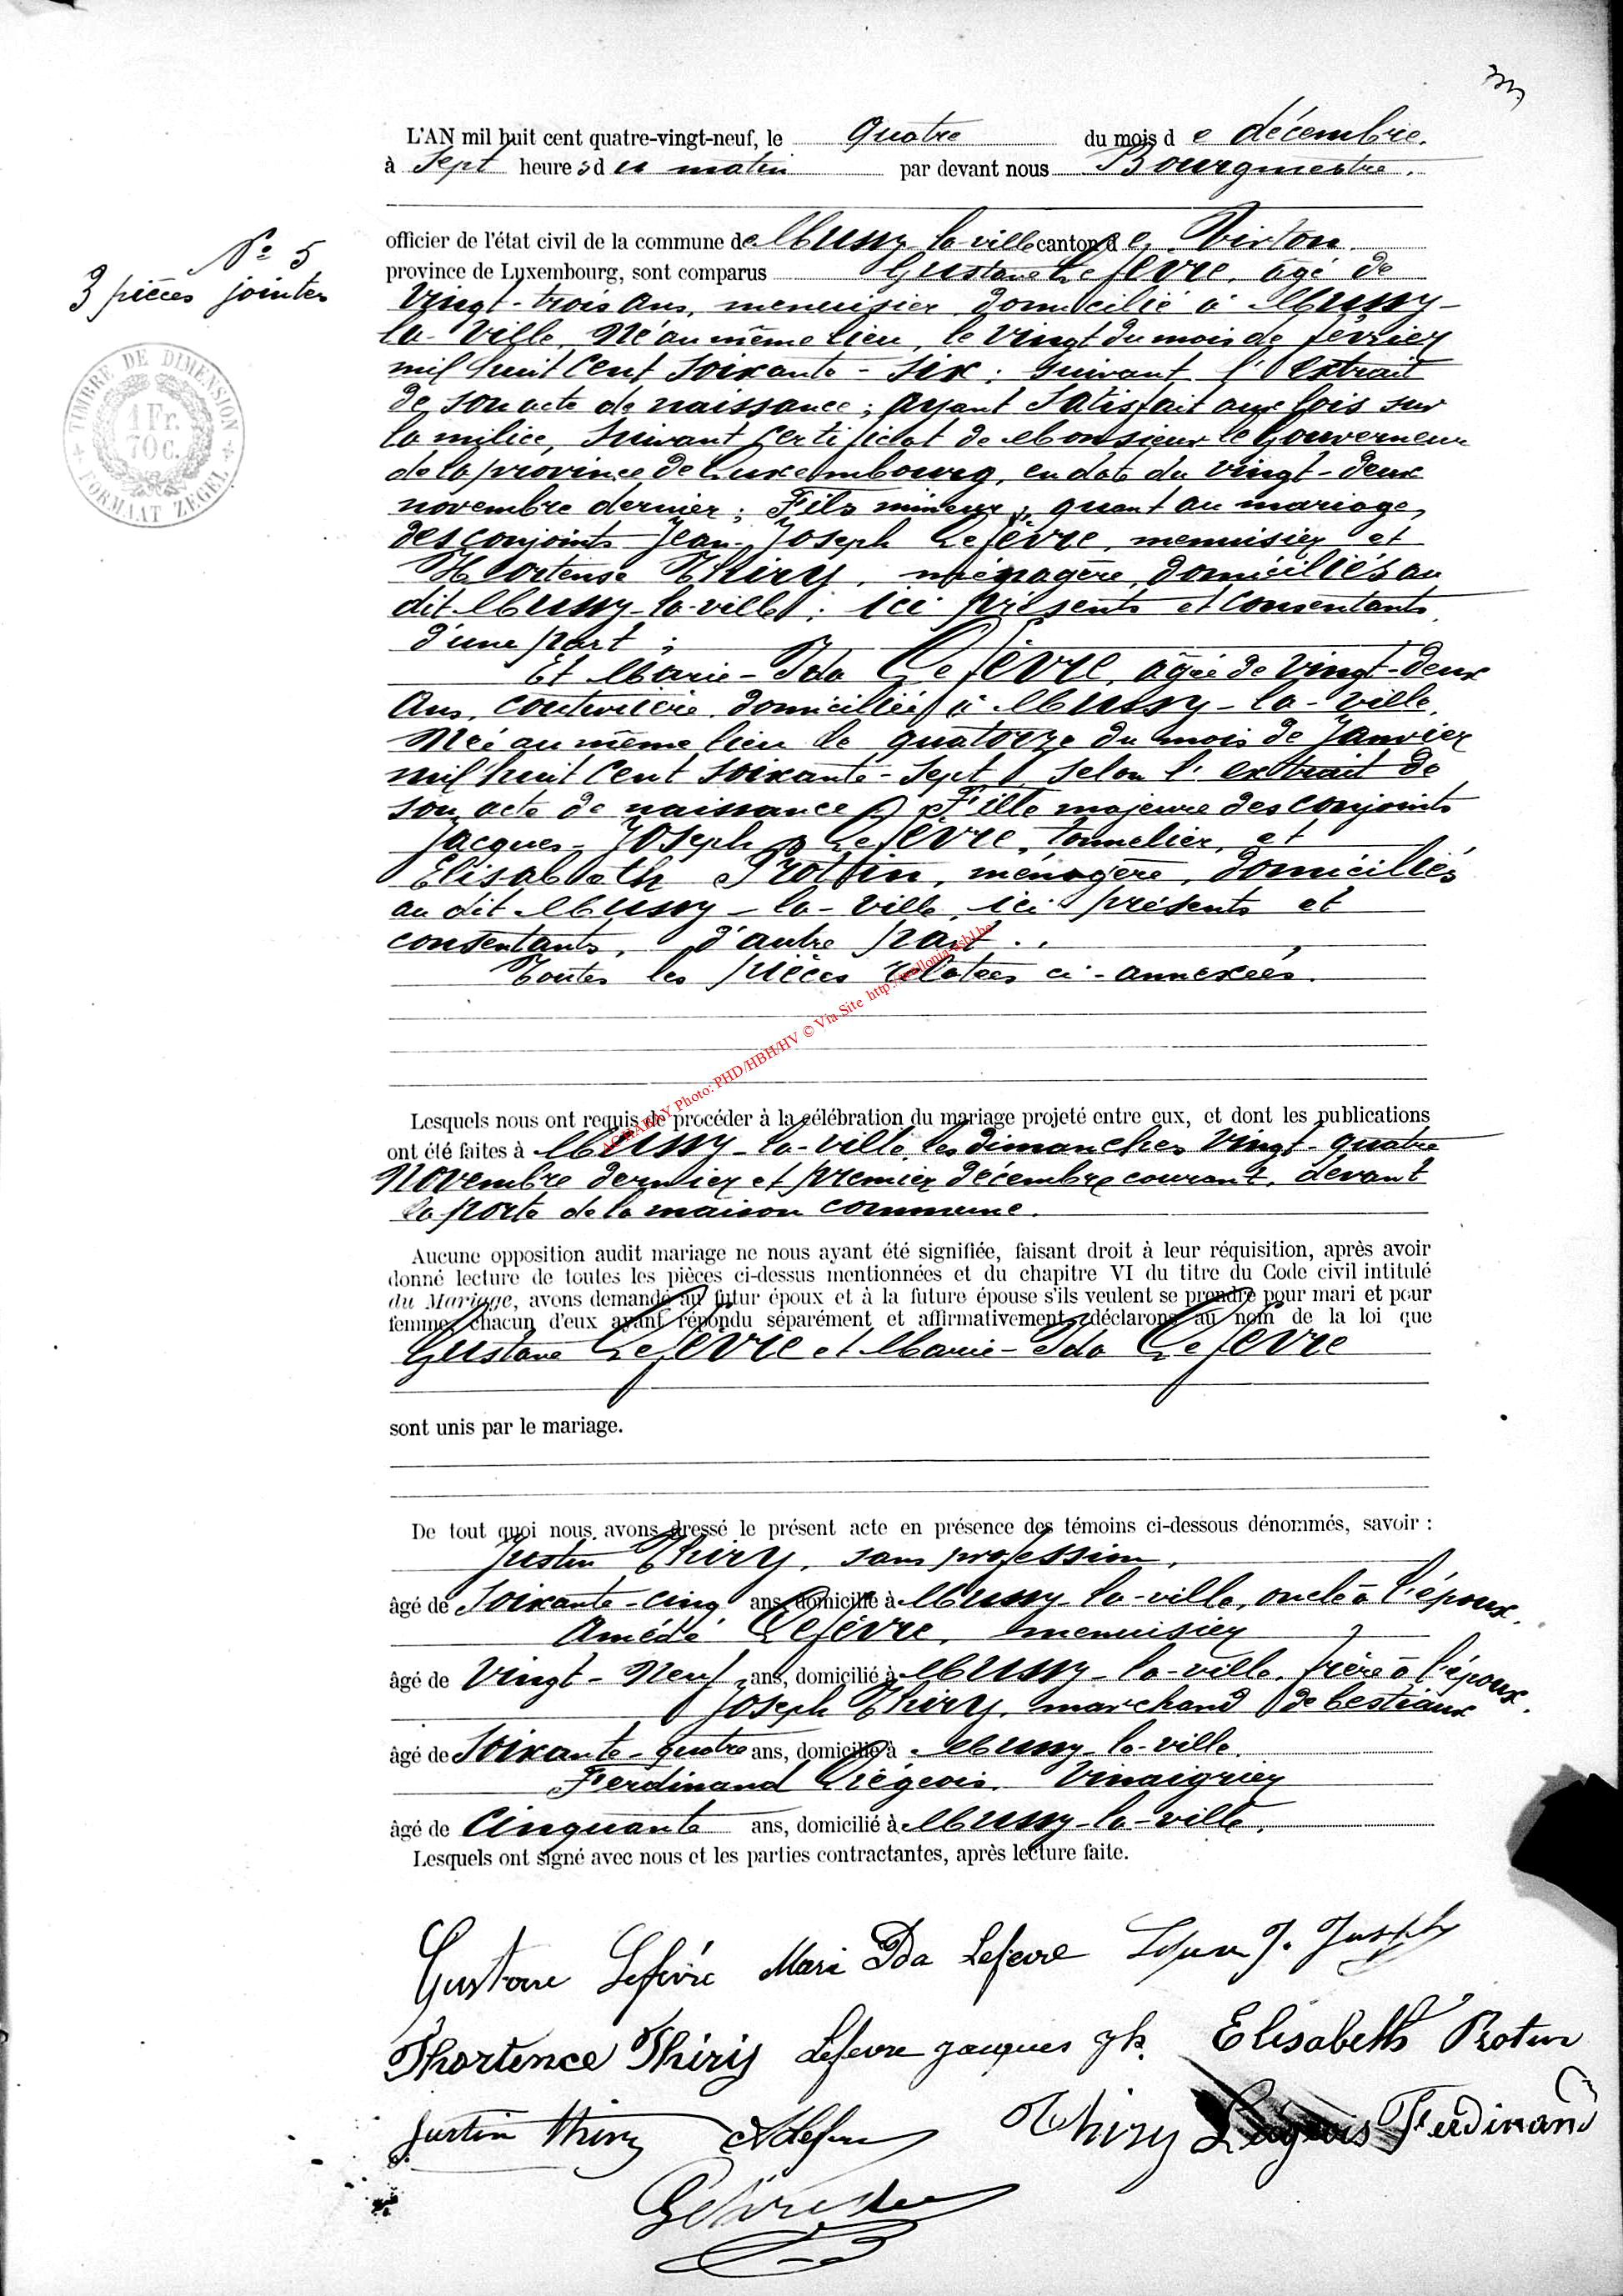 L'AN mil huit cent quatre-vingt-neuf, le Quatre du mois de décembre.
à Sept heures du matin par devant nous Bourgmestre,
officier de l'état civil de la commune de Mussy-la-ville canton de Virton
province de Luxembourg, sont comparus Gustave Lefèvre, âgé de
Vingt-trois ans, menuisier, domicilié à Mussy-
la-Ville, Né au même lieu, le Vingt du mois de février
mil huit Cent Soixante-six; suivant l'extrait
de son acte de naissance; ayant satisfait aux lois sur
la milice, suivant certificat de Monsieur le Gouverneur
de la province de Luxembourg, en date du vingt-deux
novembre dernier; Fils mineur, quant au mariage,
des conjoints Jean-Joseph Lefèvre, menuisier et
Hortense Thiry, ménagère, domiciliés au
dit Mussy-la-ville; ici présents et consentants,
d'une part;
Et Marie-Ida Lefèvre, âgée de Vingt-deux
Ans, couturière, domiciliée à Mussy-la-Ville,
Née au même lieu le quatorze du mois de Janvier
mil huit Cent soixante-sept, selon l'extrait de
son acte de naissance; Fille majeure des conjoints
Jacques-Joseph Lefèvre, tonnelier, et
Elisabeth Protin, ménagère, domiciliés
au dit Mussy-la-Ville, ici présents et
consentants, d'autre part.
Toutes les pièces relatées ci-annexées.
N° 5
3 pièces jointes
TIMBRE DE DIMENSION
1 Fr.
70 C.
FORMAAT ZEGEL
ACHARAY Photo: PHD/HBH/HV © Via Site http://wallonia-asbl.be
Lesquels nous ont requis de procéder à la célébration du mariage projeté entre eux, et dont les publications
ont été faites à Mussy-la-ville, les dimanches Vingt-quatre
Novembre dernier et premier décembre courant, devant
la porte de la maison commune.
Aucune opposition audit mariage ne nous ayant été signifiée, faisant droit à leur réquisition, après avoir
donné lecture de toutes les pièces ci-dessus mentionnées et du chapitre VI du titre du Code civil intitulé
du Mariage, avons demandé au futur époux et à la future épouse s'ils veulent se prendre pour mari et pour
femme; chacun d'eux ayant répondu séparément et affirmativement, déclarons au nom de la loi que
Gustave Lefèvre et Marie-Ida Lefèvre
sont unis par le mariage.
De tout quoi nous avons dressé le présent acte en présence des témoins ci-dessous dénommés, savoir :
Justin Thiry, sans profession,
âgé de Soixante-cinq ans, domicilié à Mussy-la-ville, oncle à l'époux.
Amédé Lefèvre, menuisier
âgé de Vingt-Neuf ans, domicilié à Mussy-la-ville, frère à l'époux.
Joseph Thiry, marchand de bestiaux
âgé de Soixante-quatre ans, domicilié à Mussy-la-ville.
Ferdinand Liégeois, Vinaigrier
âgé de Cinquante ans, domicilié à Mussy-la-ville.
Lesquels ont signé avec nous et les parties contractantes, après lecture faite.
Gustave Lefèvre Mari Ida Lefevre J. Joseph
Thortence Thiry Lefevre jacques jh. Elisabeth Protin
Justin Thiry Thiry Liégeois Ferdinand